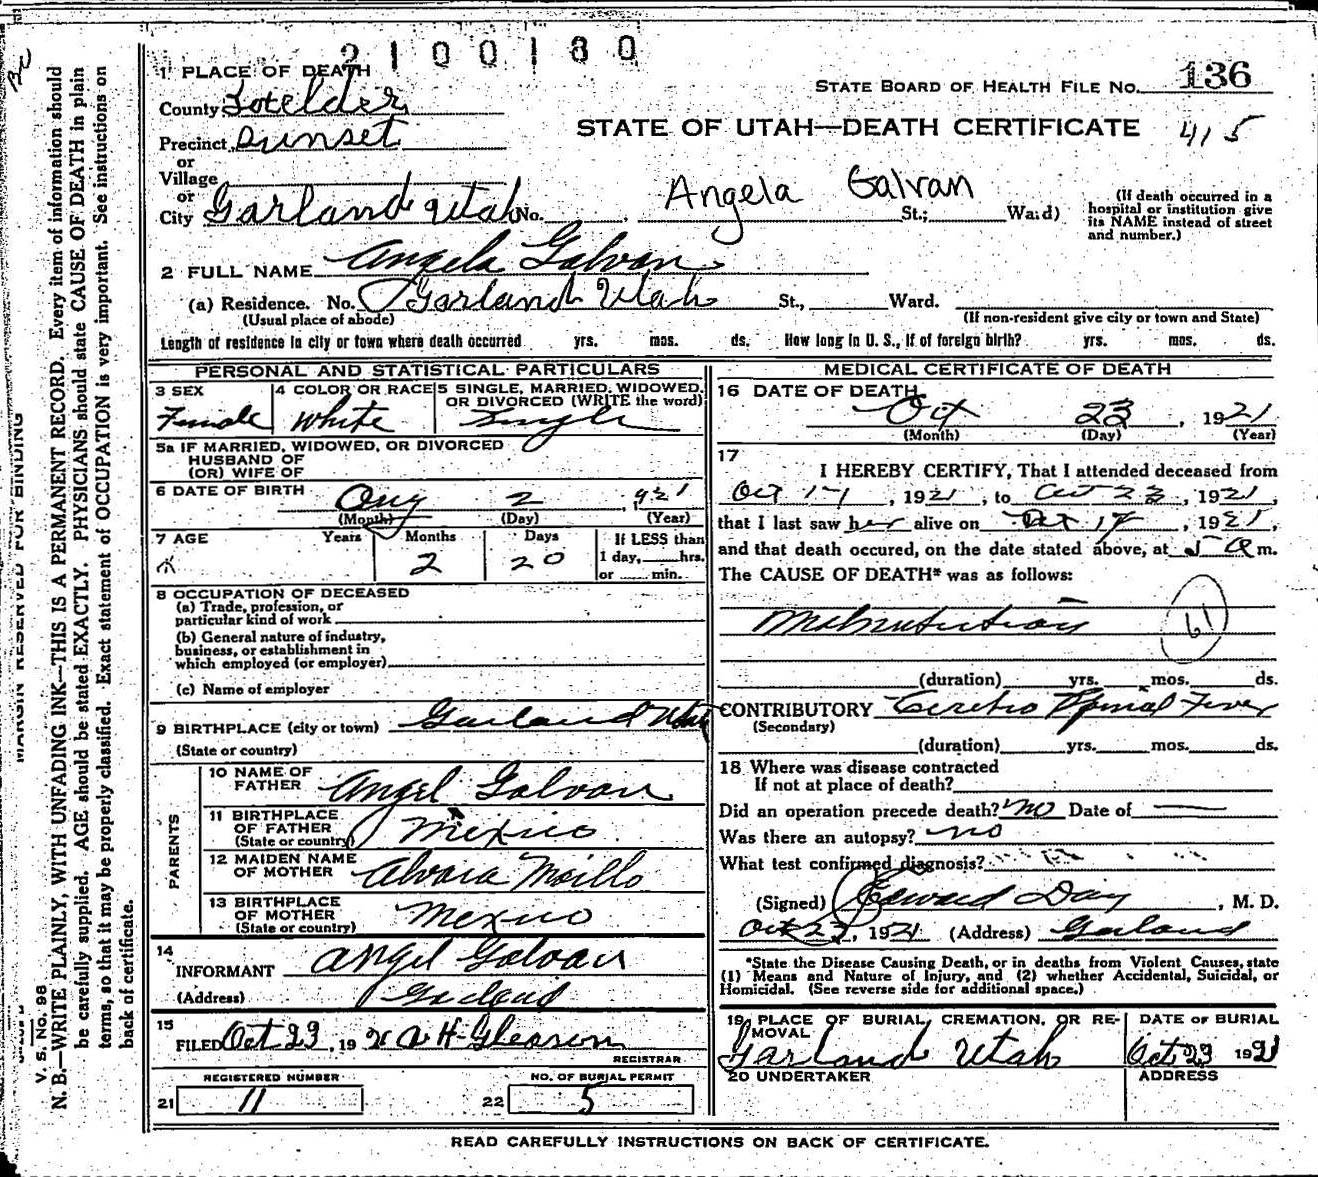 2100180
1 PLACE OF DEATH
STATE BOARD OF HEALTH FILE No. 136
County Boxelder
STATE OF UTAH—DEATH CERTIFICATE 415
Precinct Sunset
or
Village
or
City Garland Utah No. Angela Galvan St.; Ward)
(If death occurred in a hospital or institution give its NAME instead of street and number.)
2 FULL NAME Angela Galvan
(a) Residence. No. Garland Utah St., Ward.
(Usual place of abode) (If non-resident give city or town and State)
Length of residence in city or town where death occurred yrs. mos. ds. How long in U. S., if of foreign birth? yrs. mos. ds.
PERSONAL AND STATISTICAL PARTICULARS
3 SEX Female
4 COLOR OR RACE White
5 SINGLE, MARRIED, WIDOWED, OR DIVORCED (WRITE the word) Single
5a IF MARRIED, WIDOWED, OR DIVORCED
HUSBAND OF
(OR) WIFE OF
6 DATE OF BIRTH Aug 2 1921
(Month) (Day) (Year)
7 AGE Years Months 2 Days 20
If LESS than 1 day, hrs. or min.
8 OCCUPATION OF DECEASED
(a) Trade, profession, or
particular kind of work
(b) General nature of industry,
business, or establishment in
which employed (or employer)
(c) Name of employer
9 BIRTHPLACE (city or town) Garland Utah
(State or country)
PARENTS
10 NAME OF FATHER Angel Galvan
11 BIRTHPLACE OF FATHER (State or country) Mexico
12 MAIDEN NAME OF MOTHER Alvara
13 BIRTHPLACE OF MOTHER (State or country) Mexico
14 INFORMANT Angel Galvan
(Address) Garland
15 FILED Oct 23, 1921 A H Gleason
REGISTRAR
REGISTERED NUMBER NO. OF BURIAL PERMIT
21 11 22 5
MEDICAL CERTIFICATE OF DEATH
16 DATE OF DEATH
Oct 23, 1921
(Month) (Day) (Year)
17 I HEREBY CERTIFY, That I attended deceased from
Oct 17, 1921, to Oct 23, 1921,
that I last saw her alive on Oct 17, 1921,
and that death occured, on the date stated above, at 5 a m.
The CAUSE OF DEATH* was as follows:
Malnutrition 61
(duration) yrs. mos. ds.
CONTRIBUTORY Cerebro Spinal Fever
(Secondary)
(duration) yrs. mos. ds.
18 Where was disease contracted
If not at place of death?
Did an operation precede death? No Date of
Was there an autopsy? no
What test confirmed diagnosis?
(Signed) Edward Day, M. D.
Oct 23, 1921 (Address) Garland
*State the Disease Causing Death, or in deaths from Violent Causes, state
(1) Means and Nature of Injury, and (2) whether Accidental, Suicidal, or
Homicidal. (See reverse side for additional space.)
19 PLACE OF BURIAL, CREMATION, OR REMOVAL Garland Utah
DATE OF BURIAL Oct 23 1921
20 UNDERTAKER ADDRESS
READ CAREFULLY INSTRUCTIONS ON BACK OF CERTIFICATE.
MARGIN RESERVED FOR BINDING
V. S. No. 98
N. B.—WRITE PLAINLY, WITH UNFADING INK—THIS IS A PERMANENT RECORD. Every item of information should
be carefully supplied. AGE should be stated EXACTLY. PHYSICIANS should state CAUSE OF DEATH in plain
terms, so that it may be properly classified. Exact statement of OCCUPATION is very important. See instructions on
back of certificate.